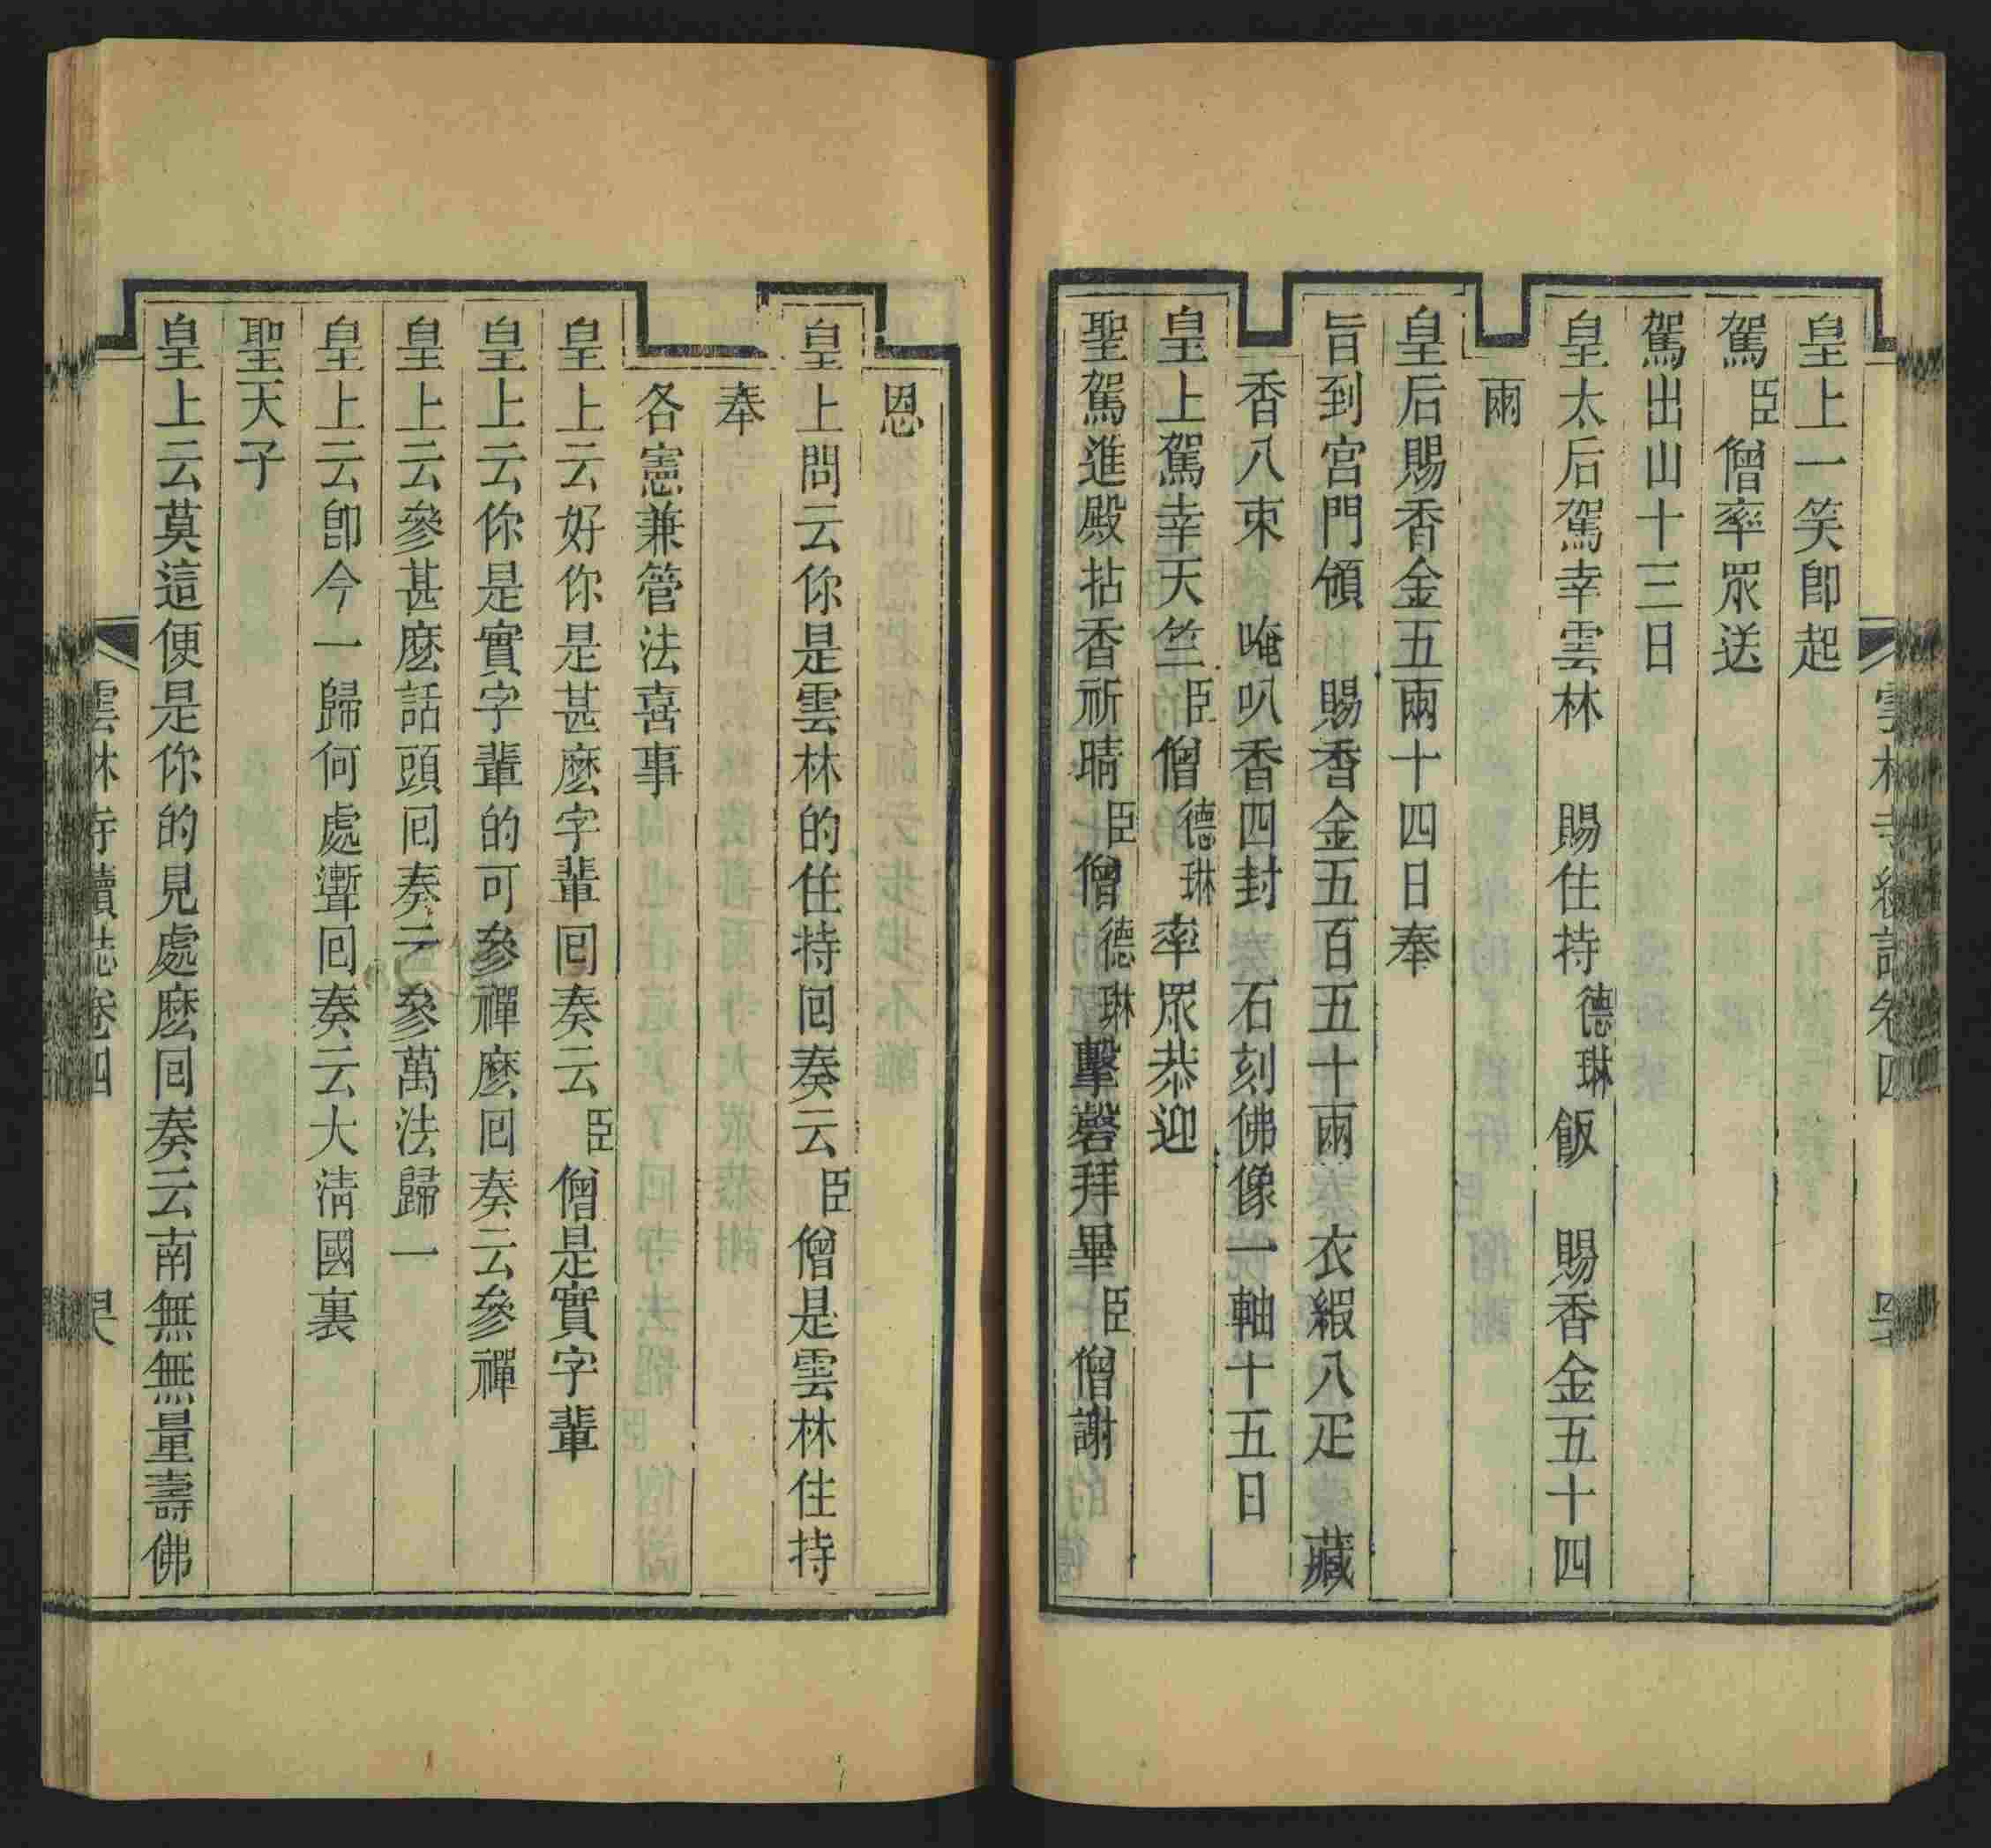 皇上一笑卽起
駕臣僧率眾送
駕出山十三日
皇太后駕幸雲林　賜住持德琳飯　賜香金五十四
兩
皇后賜香金五兩十四日奉
旨到宮門領　賜香金五百五十兩　衣緞八疋　藏
香八束　唵叭香四封　石刻佛像一軸十五日
皇上駕幸天竺臣僧德琳率眾恭迎
聖駕進殿拈香祈晴臣僧德琳擊磬拜畢臣僧謝
雲林寺續誌卷四
恩
皇上問云你是雲林的住持回奏云臣僧是雲林住持
奉
各憲兼管法喜事
皇上云好你是甚麽字輩回奏云臣僧是實字輩
皇上云你是實字輩的可參禪麽回奏云參禪
皇上云參甚麽話頭回奏云參萬法歸一
皇上云卽今一歸何處漸回奏云大清國裏
聖天子
皇上云莫這便是你的見處麽回奏云南無無量壽佛
雲林寺續誌卷四